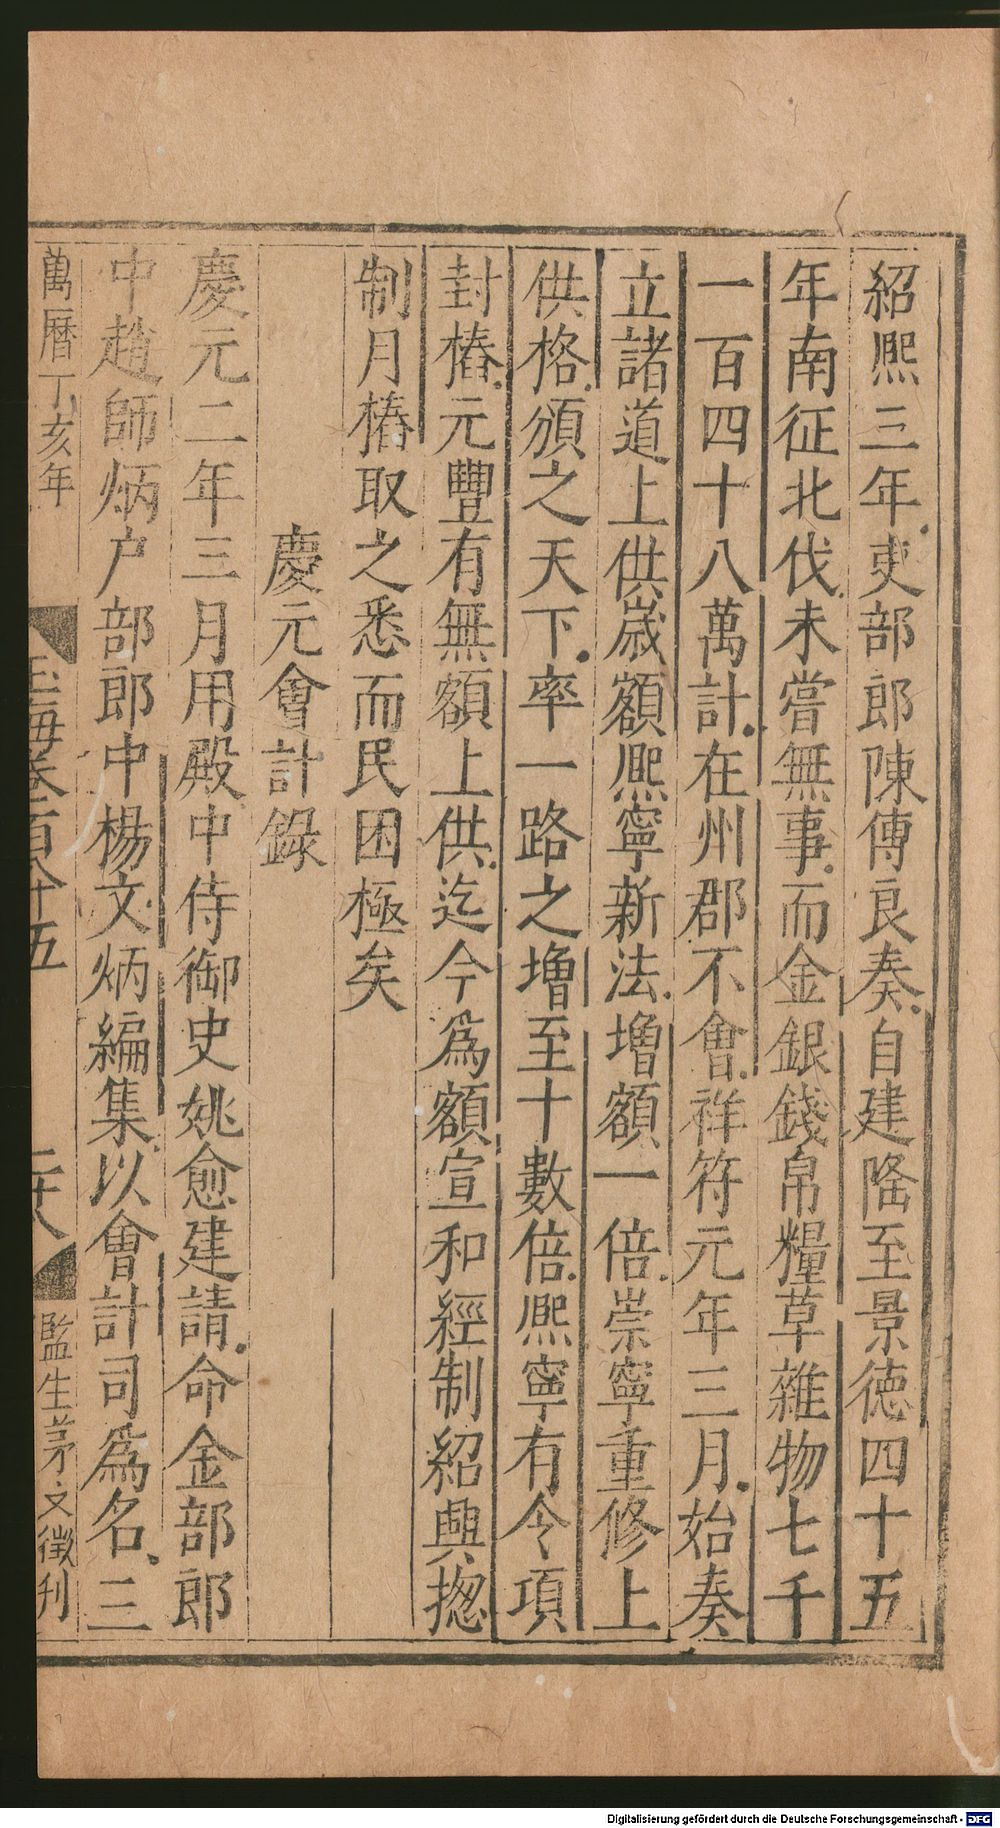 紹熙三年吏部郎陳傅良奏自建隆至景德四十五
年南征北伐未嘗無事而金銀錢帛糧草雜物七千
一百四十八萬計在州郡不會祥符元年三月始奏
立諸道上供歲額熙寧新法增額一倍崇寧重修上
供格頒之天下率一路之增至十數倍熙寧有令項
封樁元豐有無額上供迄今爲額宣和經制紹興揔
制月樁取之悉而民困極矣
慶元會計錄
慶元二年三月用殿中侍御史姚愈建請命金部郎
中趙師炳户部郎中楊文炳編集以會計司爲名三
萬曆丁亥年
玉海卷百八十五
二十八
監生茅文徵刋
Digitalisierung gefördert durch die Deutsche Forschungsgemeinschaft - DFG